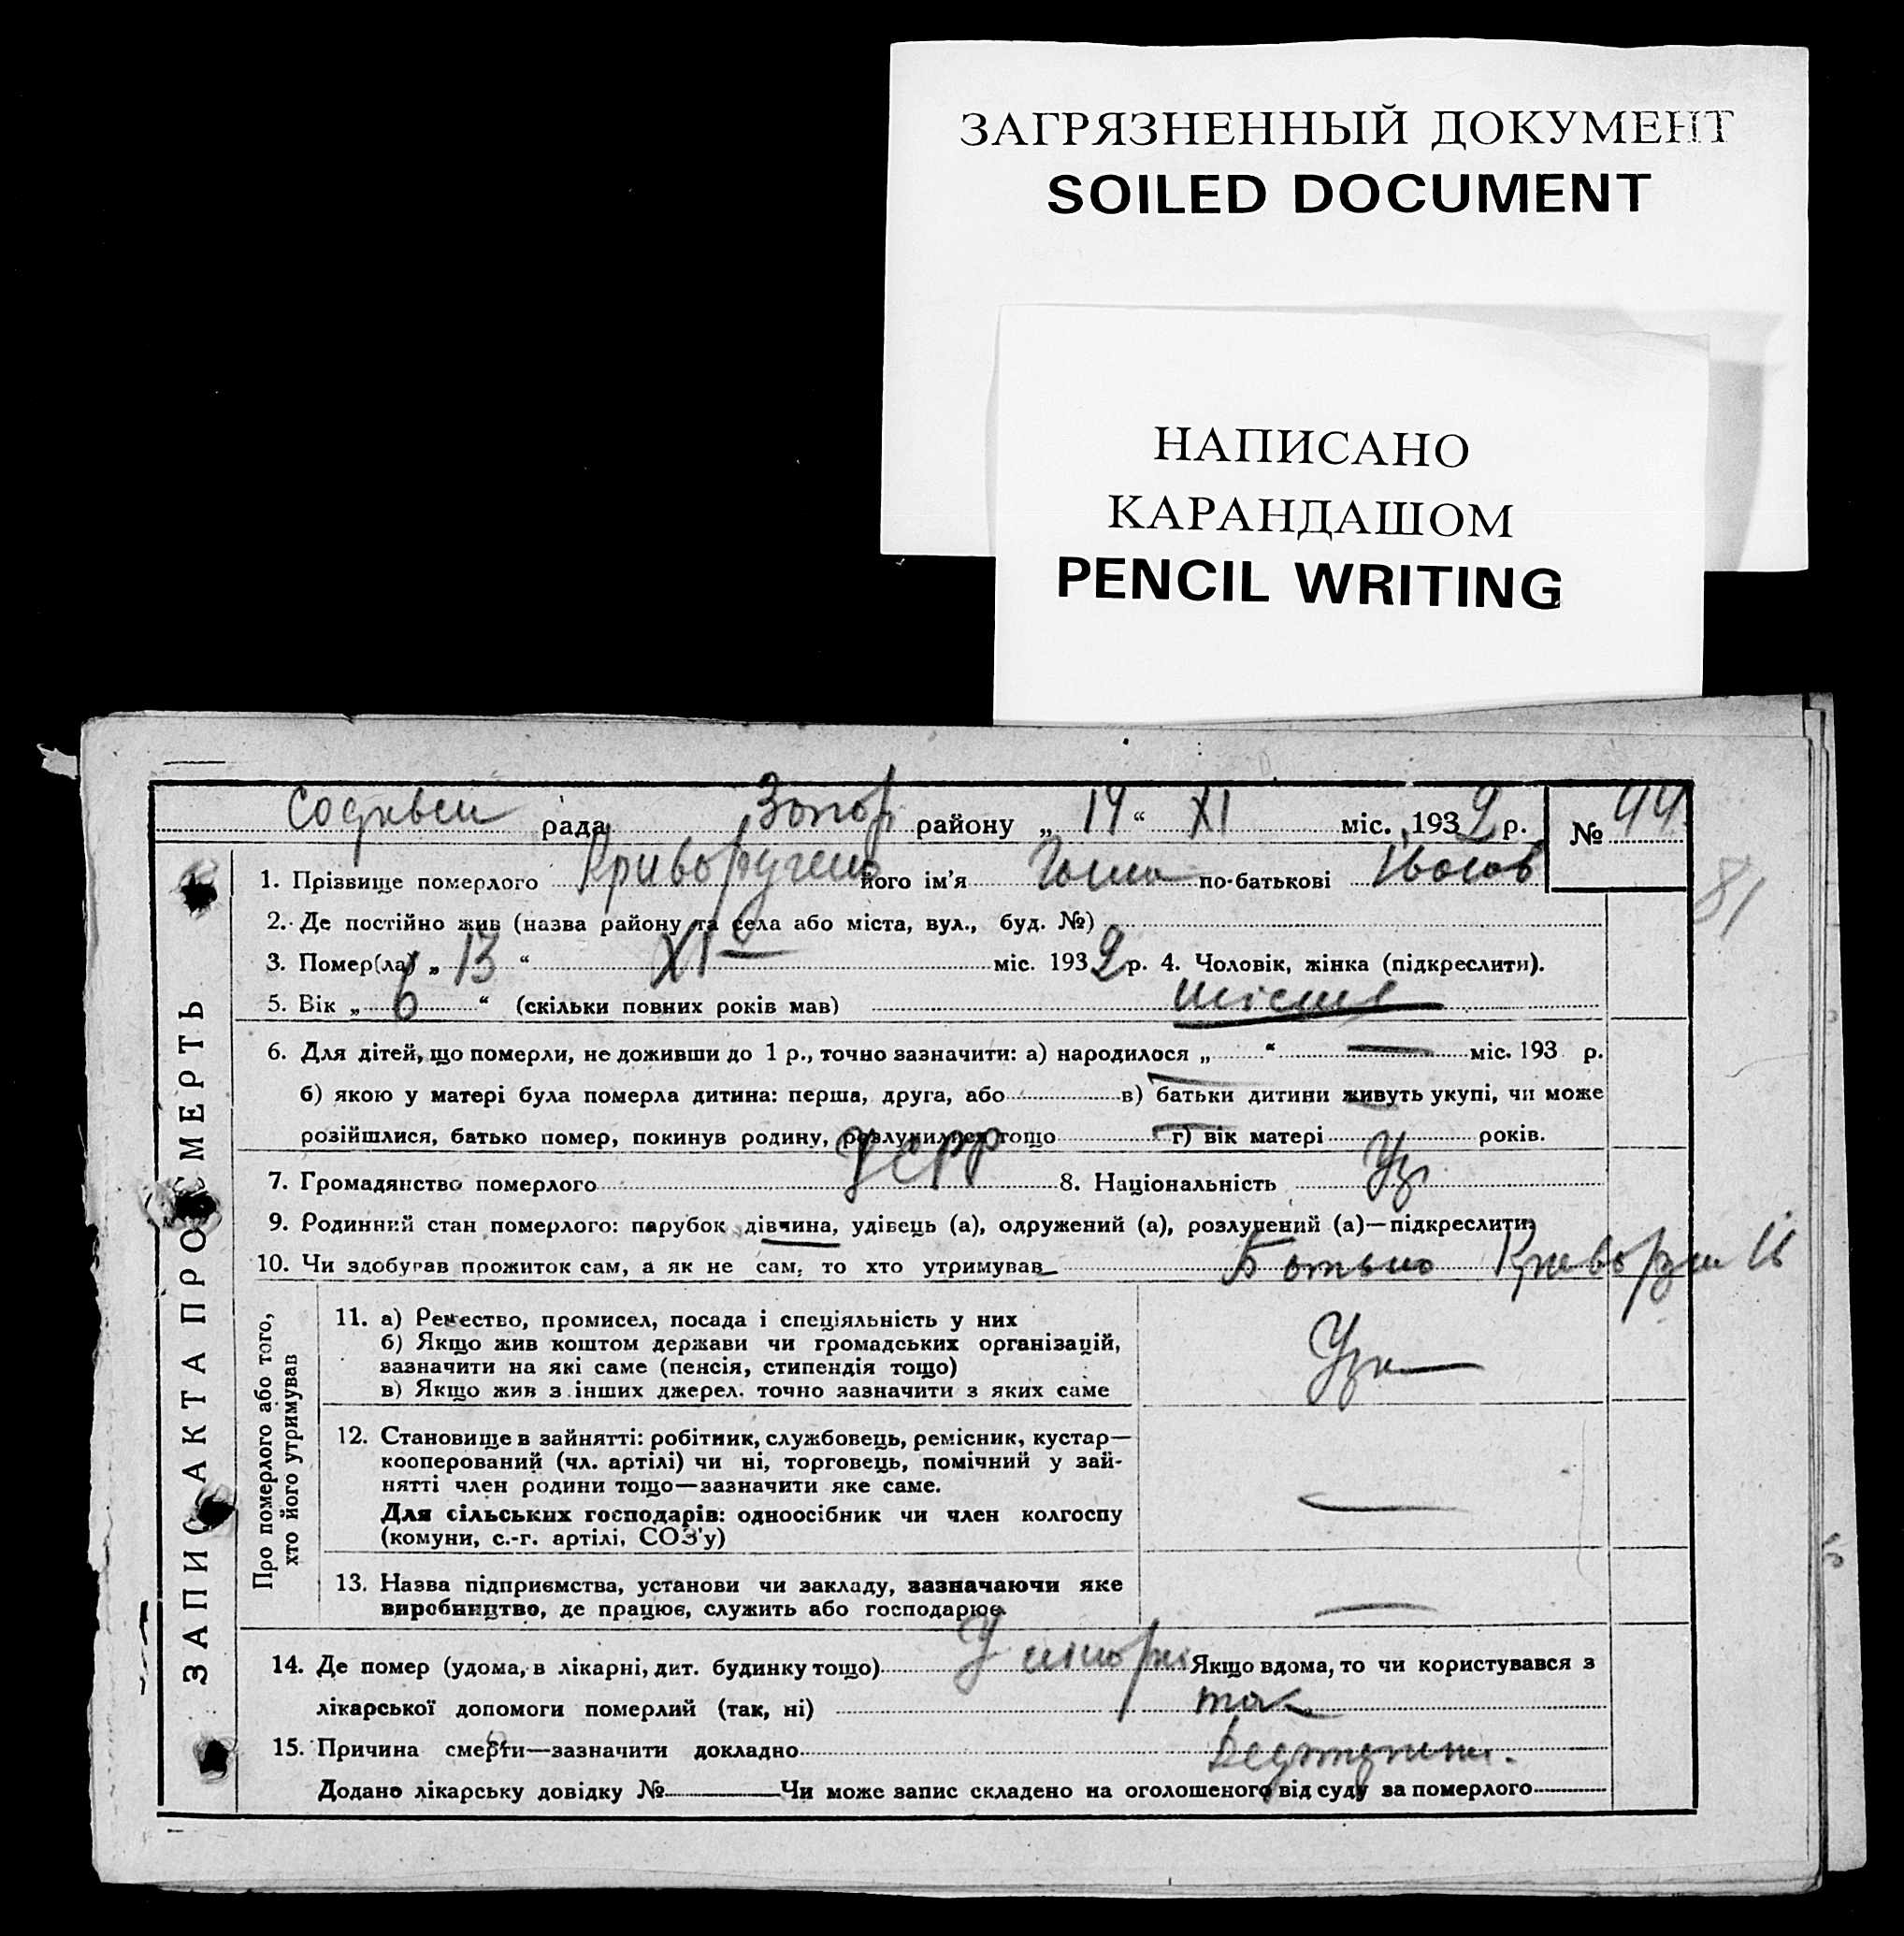 ЗАГРЯЗНЕННЫЙ ДОКУМЕНТ
SOILED DOCUMENT
НАПИСАНО
КАРАНДАШОМ
PENCIL WRITING
рада Запор району „ 14 “ XI міс. 1932 р. № 44
81
1. Прізвище померлого Криворученко його ім'я по-батькові
2. Де постійно жив (назва району та села або міста, вул., буд. №)
3. Помер(ла) „ 13 “ XI міс. 1932 р. 4. Чоловік, жінка (підкреслити).
5. Вік „ 6 “ (скільки повних років мав) шість
6. Для дітей, що померли, не доживши до 1 р., точно зазначити: а) народилося „ “ — міс. 193 р.
б) якою у матері була померла дитина: перша, друга, або в) батьки дитини живуть укупі, чи може
розійшлися, батько помер, покинув родину, розлучилися тощо г) вік матері років.
7. Громадянство померлого УСРР 8. Національність Укр
9. Родинний стан померлого: парубок дівчина, удівець (а), одружений (а), розлучений (а)—підкреслити
10. Чи здобував прожиток сам, а як не сам, то хто утримував Батько
ЗАПИС АКТА ПРО СМЕРТЬ
Про померлого або того,
хто його утримував
11. а) Ремество, промисел, посада і спеціяльність у них
б) Якщо жив коштом держави чи громадських організацій,
зазначити на які саме (пенсія, стипендія тощо)
в) Якщо жив з інших джерел, точно зазначити з яких саме
12. Становище в зайнятті: робітник, службовець, ремісник, кустар—
кооперований (чл. артілі) чи ні, торговець, помічний у зай-
нятті член родини тощо—зазначити яке саме.
Для сільських господарів: одноосібник чи член колгоспу
(комуни, с.-г. артілі, СОЗ'у)
13. Назва підприємства, установи чи закладу, зазначаючи яке
виробництво, де працює, служить або господарює.
14. Де помер (удома, в лікарні, дит. будинку тощо) У Якщо вдома, то чи користувався з
лікарської допомоги померлий (так, ні) так
15. Причина смерти—зазначити докладно
Додано лікарську довідку № Чи може запис складено на оголошеного від суду за померлого